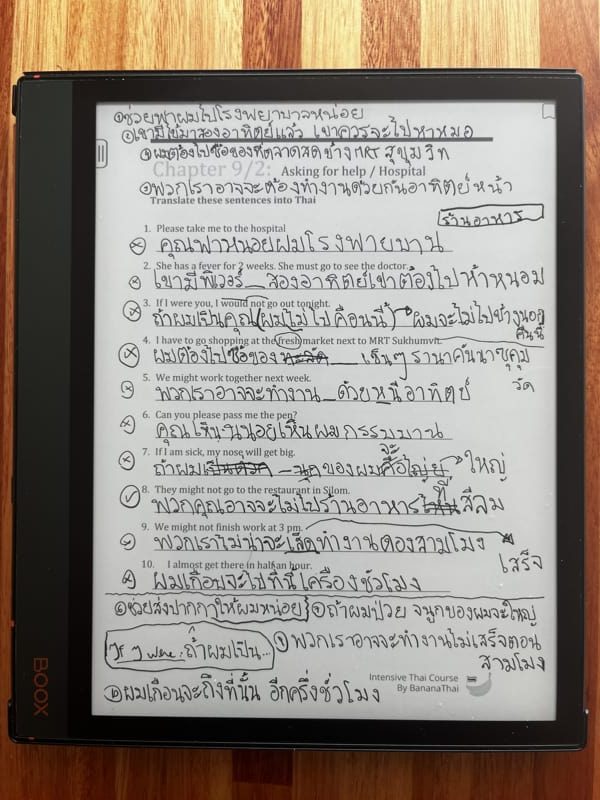 ①ช่วยพาผมไปโรงพยาบาลหน่อย
②เขามีไข้มาสองอาทิตย์แล้ว เขาควรจะไปหาหมอ
ผมต้องไปซื้อของที่ตลาดสดข้าง MRT สุขุมวิท
Chapter 9/2: Asking for help / Hospital
พวกเราอาจจะต้องทำงานด้วยกันอาทิตย์หน้า
Translate these sentences into Thai
ร้านอาหาร
1. Please take me to the hospital
คุณพาหนอยผมโรงพายบาน
2. She has a fever for 2 weeks. She must go to see the doctor.
เขามีฟิเวอร์ สองอาทิตย์เขาต้องไปห้าหนอม
3. If I were you, I would not go out tonight.
ถ้าผมเป็นคุณ (ผมไม่ไปคืนนี้) ผมจะไม่ไปข้างนอก
คืนนี้
4. I have to go shopping at the fresh market next to MRT Sukhumvit.
ผมต้องไปซื้อของ
5. We might work together next week.
พวกเราอาจจะทำงาน ด้วยหนีอาทิตย์
6. Can you please pass me the pen?
7. If I am sick, my nose will get big.
จะ
ถ้าผม ของผม ใหญ่
8. They might not go to the restaurant in Silom.
ที่
พวกคุณอาจจะไม่ไปร้านอาหาร สีลม
9. We might not finish work at 3 pm.
พวกเราไม่น่าจะเส็ดทำงานตองสามโมง
เสร็จ
10. I almost get there in half an hour.
ผมเกือบจะไปที่นี้เครื่องชัวโมง
⑥ช่วยส่งปากกาให้ผมหน่อย ⑦ถ้าผมป่วย จมูกของผมจะใหญ่
If I were: ถ้าผมเป็น...
พวกเราอาจจะทำงานไม่เสร็จตอน
สามโมง
Intensive Thai Course
By BananaThai
⑩ผมเกือบจะถึงที่นั้น อีกครึ่งชั่วโมง
BOOX